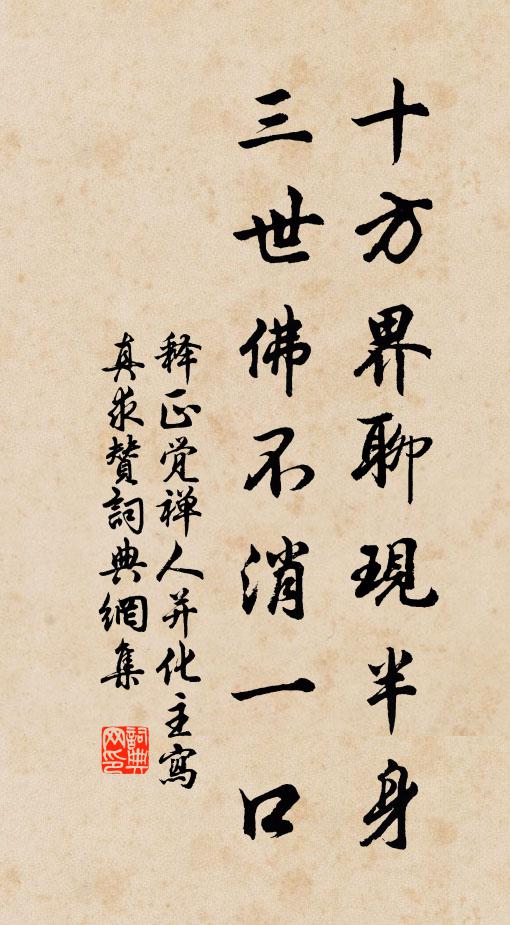 十方界聊現半身
三世佛不消一口
释正觉禅人并化主寫
真求贊詞典網集
詞典网印